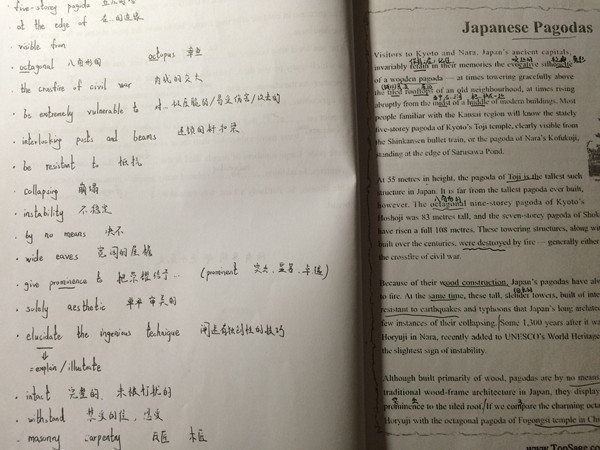 five-storey pagoda
at the edge of 在..的边缘
visible from
octagonal 八角形的 octopus 章鱼
the crossfire of civil war 内战的交火
be extremely vulnerable to 对..
interlocking posts and beams 连锁的
be resistant to 抵抗
collapsing 崩塌
instability 不稳定
by no means 决不
wide eaves 宽阔的屋檐
give prominence to (prominent 突出
solely aesthetic 单单 审美的
elucidate the ingenious technique 阐述有独创性的技巧
= explain / illustrate
intact 完整的. 未被打扰的
withstand
masonry carpentry 瓦匠 木匠
Japanese Pagodas
Visitors to Kyoto and Nara, Japan's ancient capitals,
invariably retain in their memories the evocative silhouette
of a wooden pagoda — at times towering gracefully above
the tiled rooftops of an old neighbourhood, at times rising
abruptly from the midst of a huddle of modern buildings. Most
people familiar with the Kansai region will know the stately
five-storey pagoda of Kyoto's Toji temple, clearly visible from
the Shinkansen bullet train, or the pagoda of Nara's Kofukuji,
standing at the edge of Sarusawa Pond.
At 55 metres in height, the pagoda of Toji is the tallest such
structure in Japan. It is far from the tallest pagoda ever built,
however. The octagonal nine-storey pagoda of Kyoto's
八角形的
Hoshoji was 83 metres tall, and the seven-storey pagoda of
have risen a full 108 metres. These towering structures, along
built over the centuries, were destroyed by fire — generally
the crossfire of civil war.
Because of their wood construction, Japan's pagodas have
to fire. At the same time, these tall, slender towers, built of
resistant to earthquakes and typhoons that Japan's long
few instances of their collapsing. Some 1,300 years after it
Horyuji in Nara, recently added to UNESCO's World Heritage
the slightest sign of instability.
Although built primarily of wood, pagodas are by no
traditional wood-frame architecture in Japan, they display
prominence to the tiled roof. If we compare the charming
Horyuji with the octagonal pagoda of Fogongsi temple in
www.TopSage